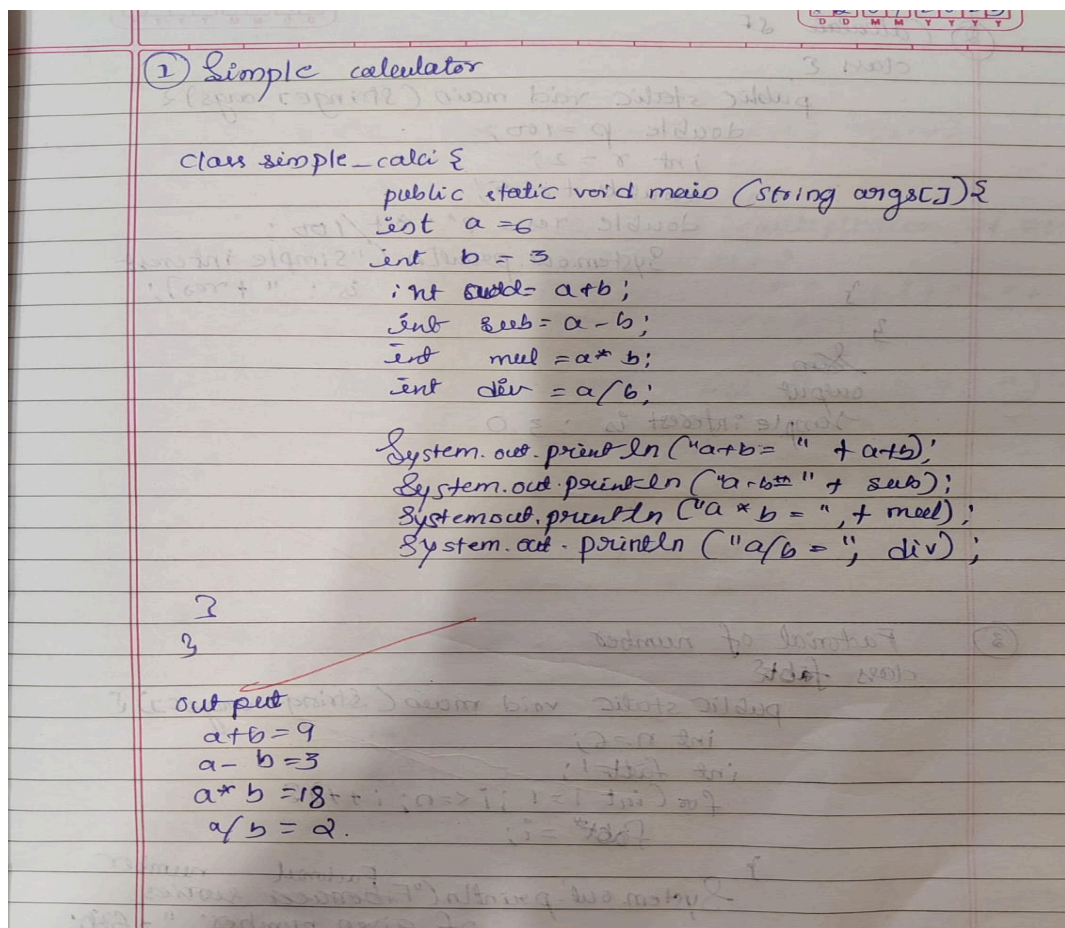 D D M M Y Y Y Y
1 Simple calculator
class simple_calci {
public static void main (string args[]){
int a =6
int b = 3
int add= a+b;
int sub= a-b;
int mul =a* b;
int div = a/b;
System.out.println ("a+b= " + a+b);
System.out.println ("a-b= " + sub);
Systemout.println ("a * b = ", + mul);
System.out.println ("a/b = ", div);
}
}
output
a+b=9
a- b=3
a* b =18
a/b = 2.